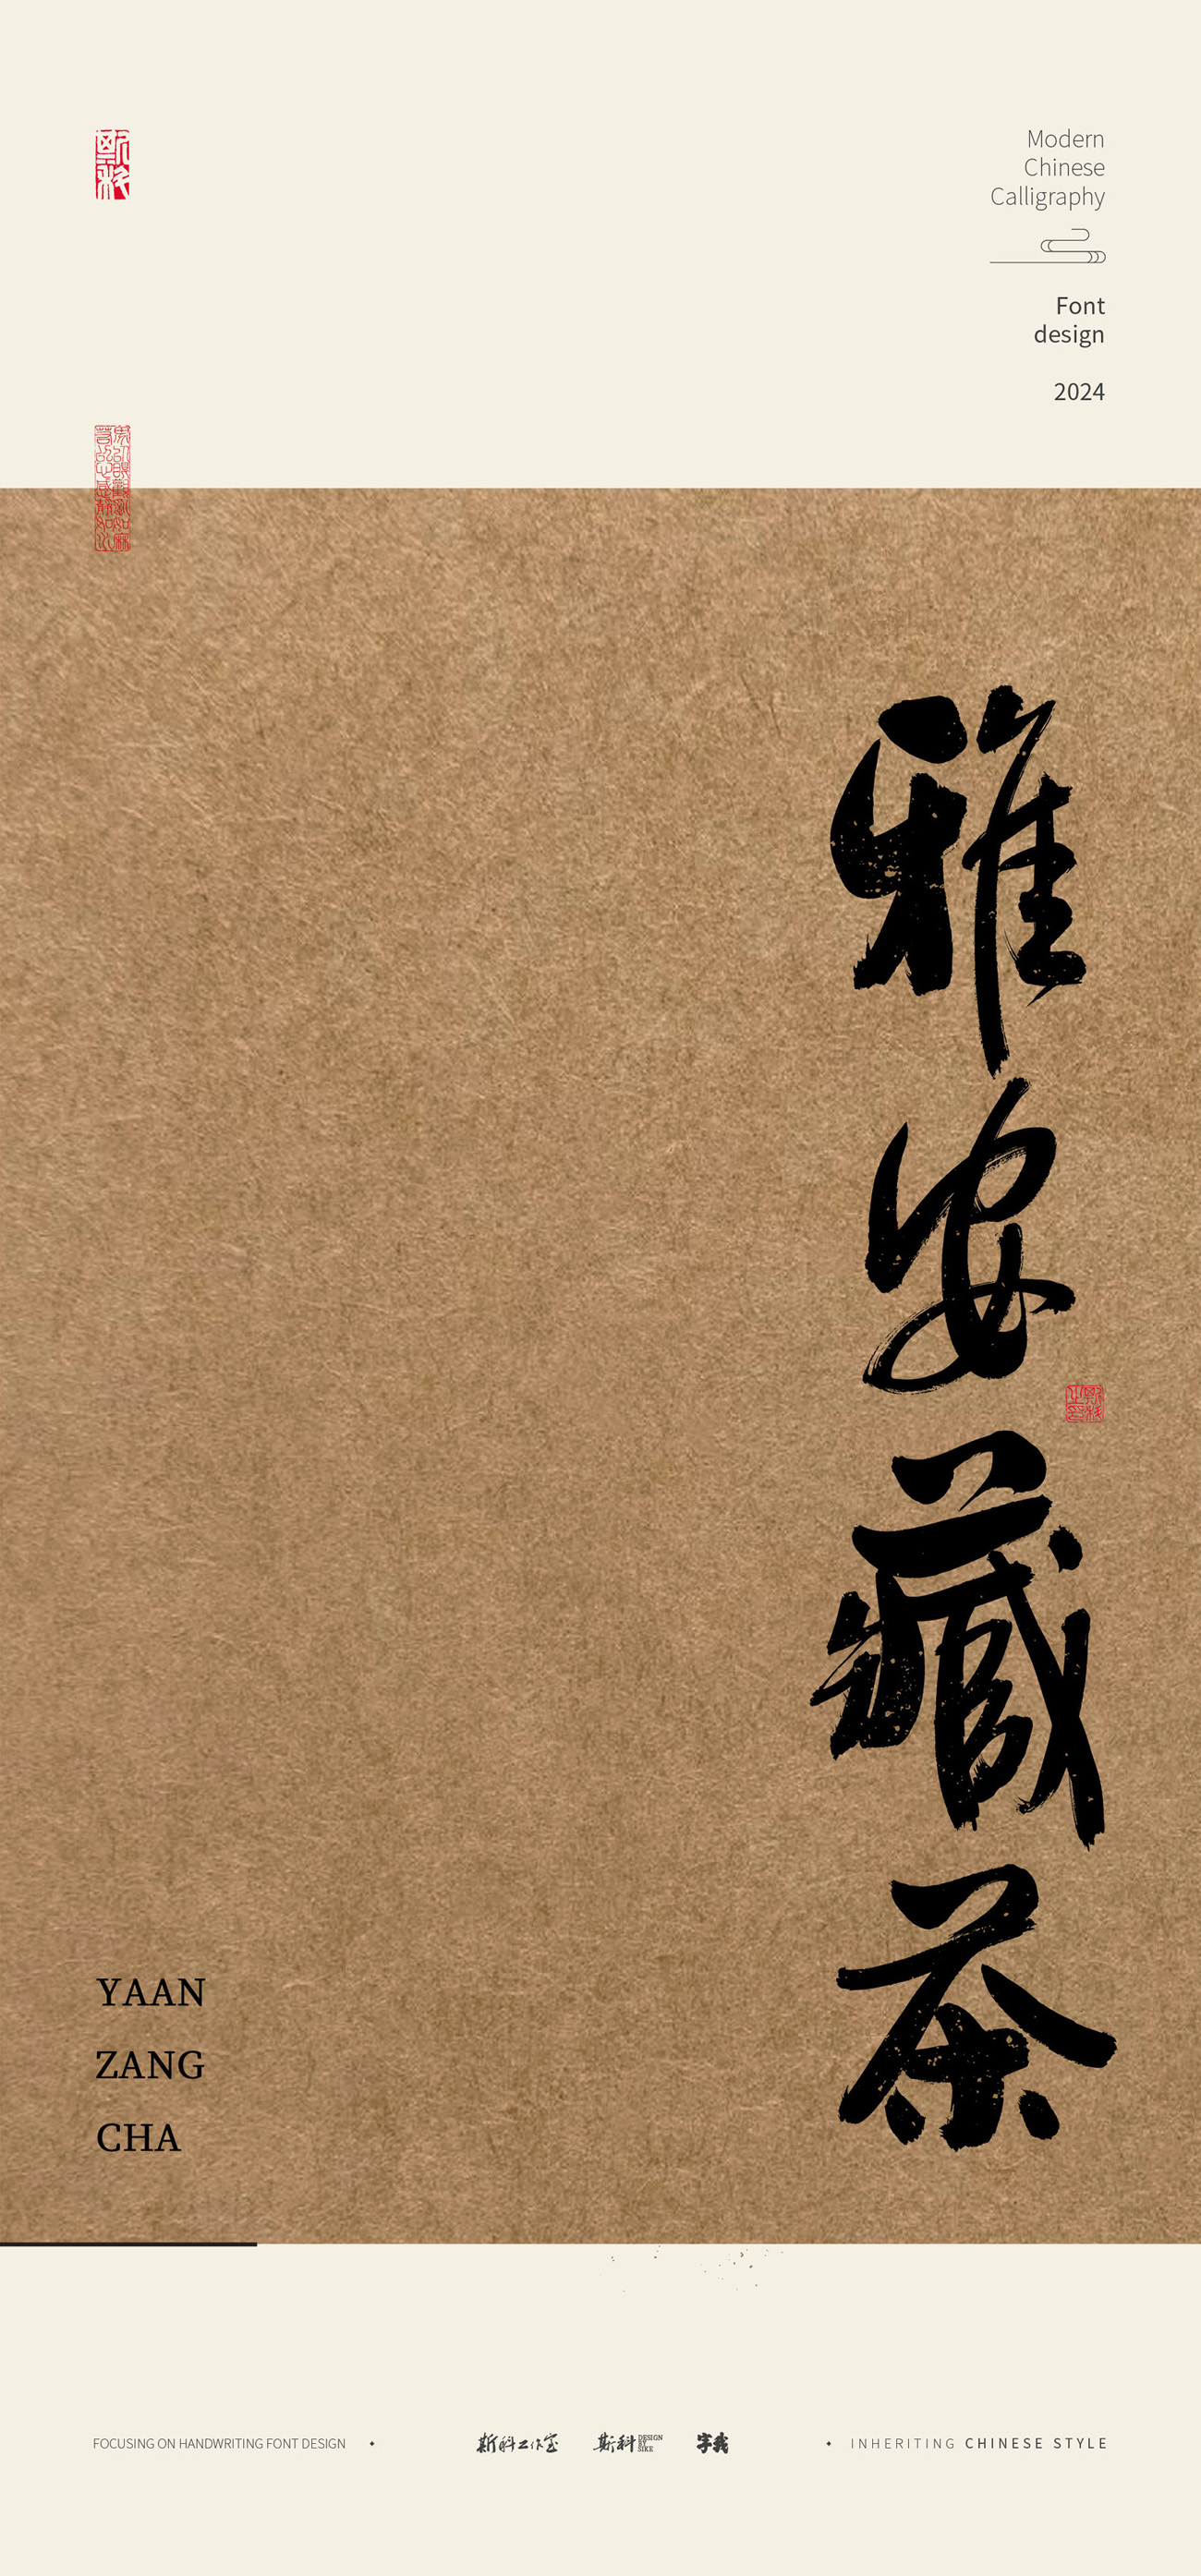 斯科
Modern
Chinese
Calligraphy
Font
design
2024
雅安藏茶
YAAN
ZANG
CHA
FOCUSING ON HANDWRITING FONT DESIGN
斯科工作室
斯科
DESIGN
BY
SIKE
字我
INHERITING CHINESE STYLE